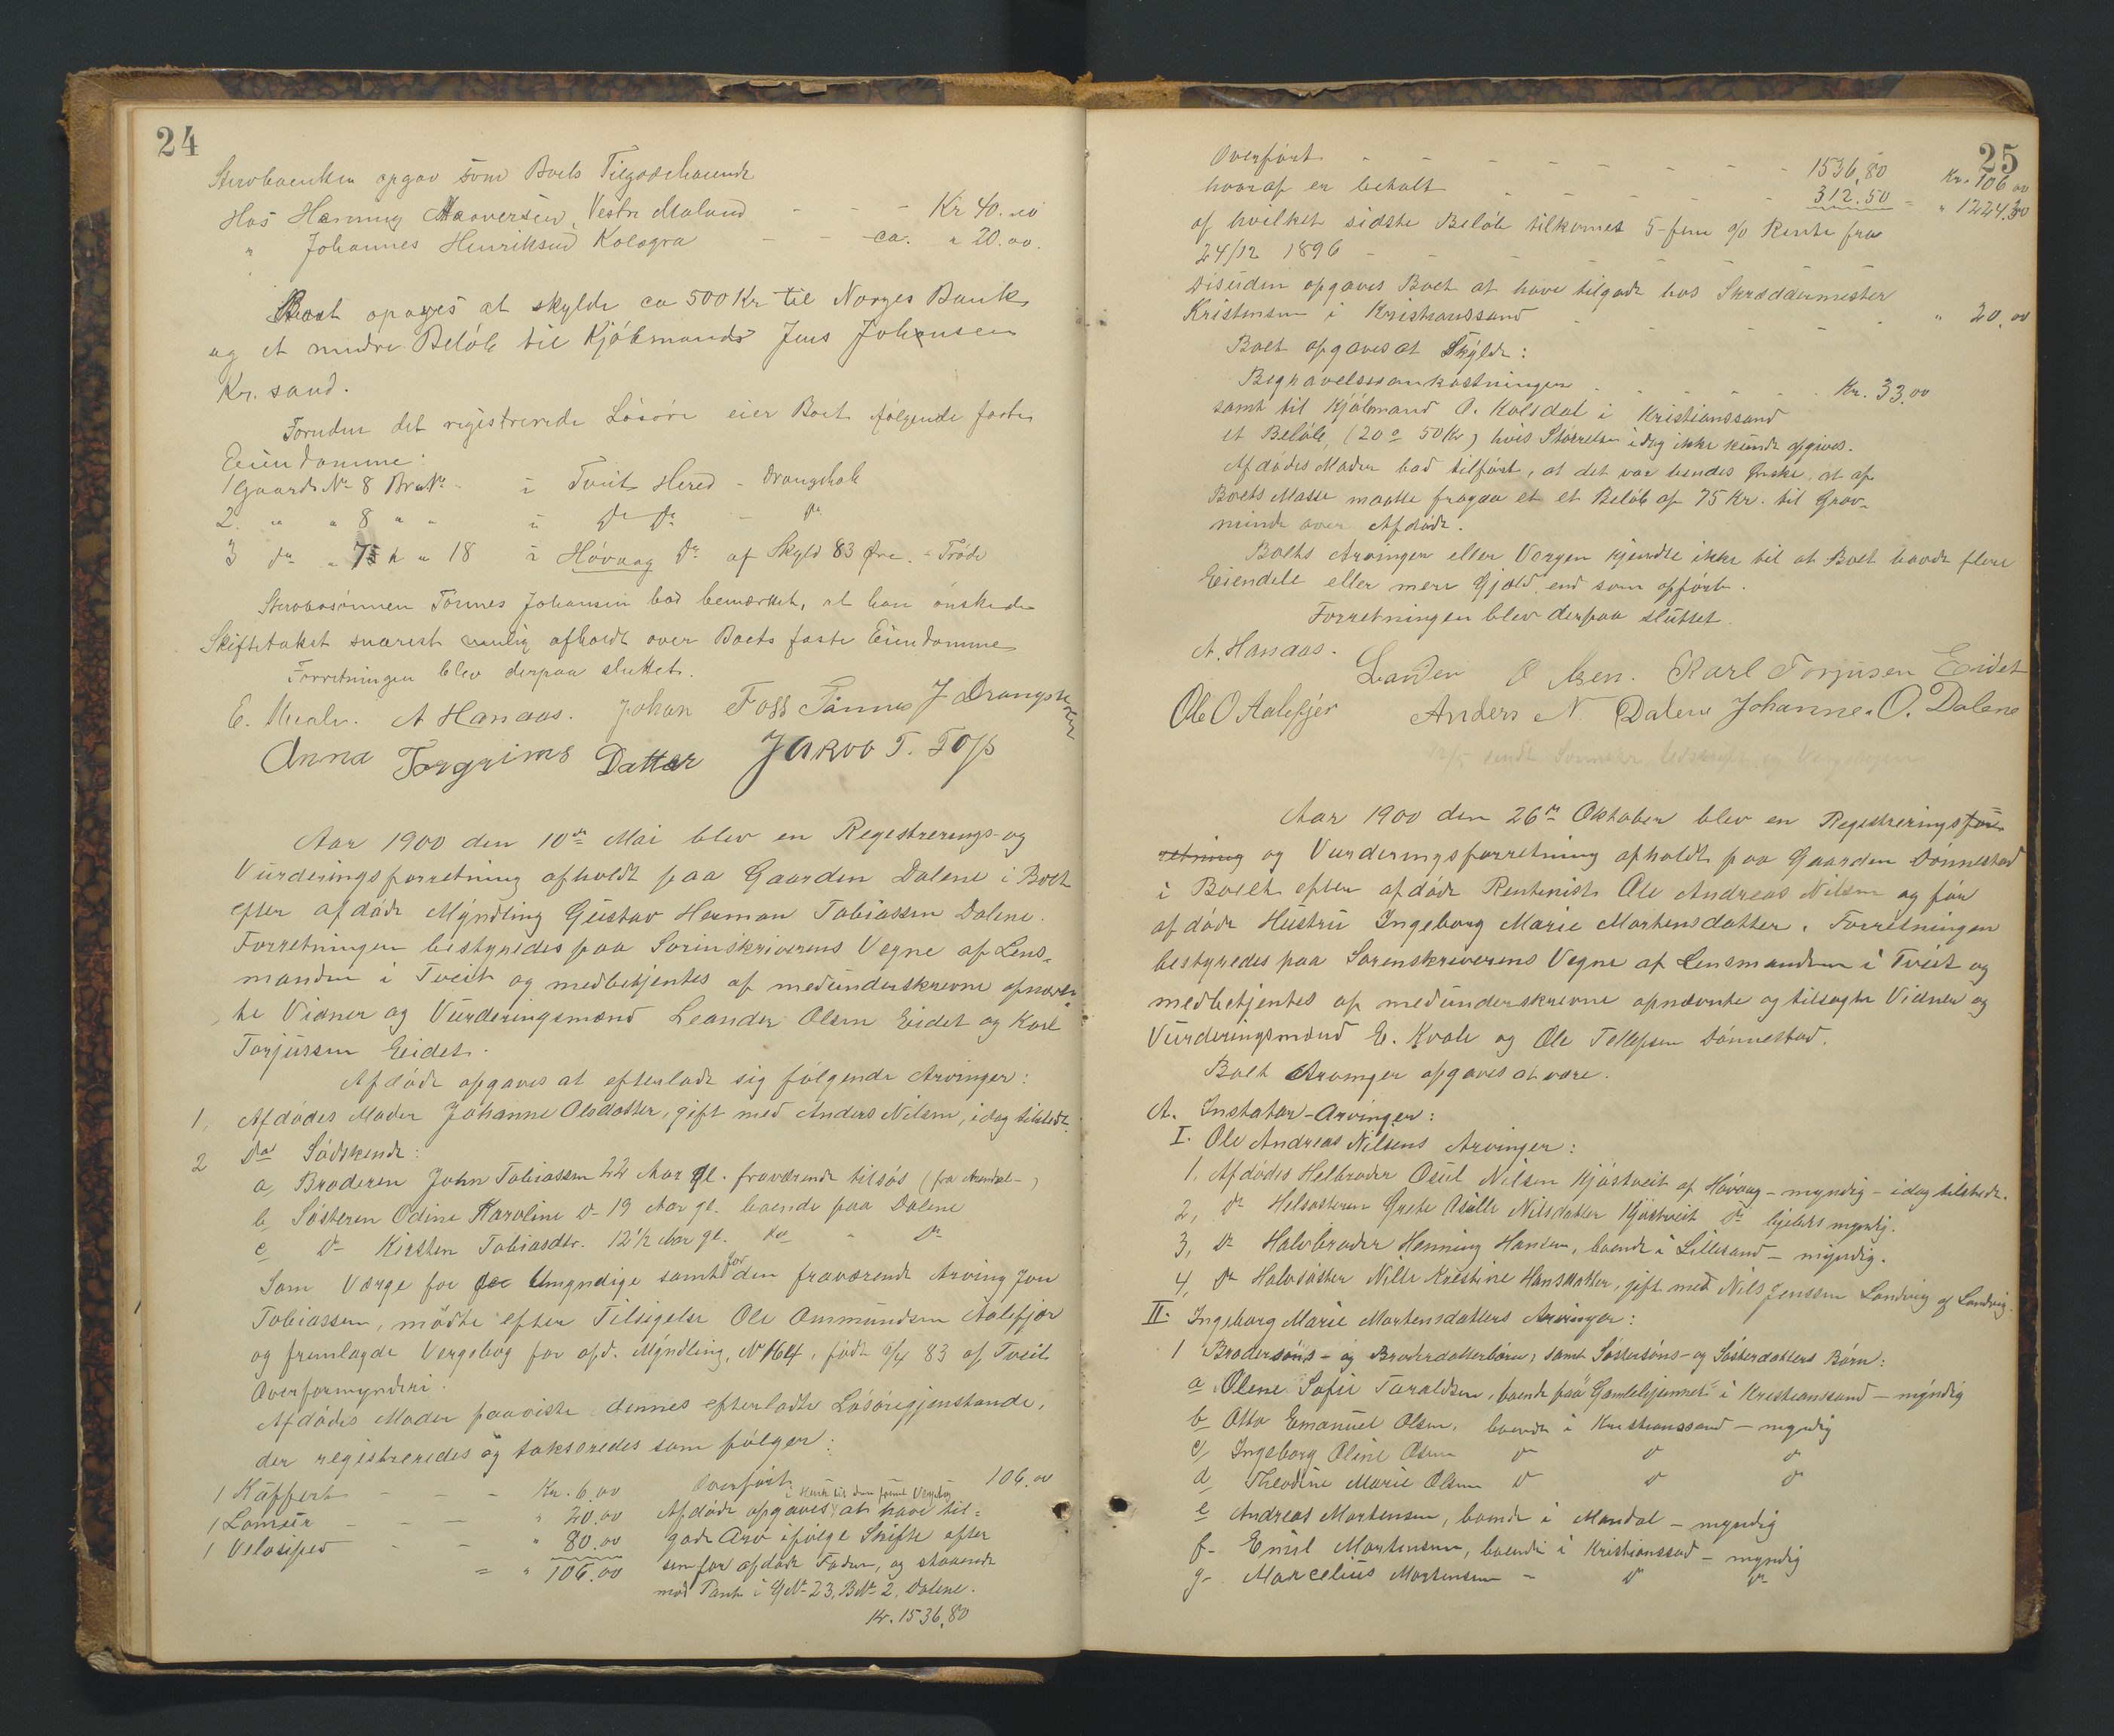 24
Stervboenken opgav som Boets Tilgodehavende
Hos Henning Haaversen, Vestre Moland - - - Kr 40.00
" Johannes Henriksen Kalogra - - ca. " 20.00.
Boet opgaves at skylde ca 500 Kr til Norges Bank
og et mindre Beløb til Kjøbmand Jens Johnsen
Kr. sand.
Foruden det registrerede Løsøre eier Boet følgende faste
Eiendomme:
1 Gaards No 8 Br.No - i Tveit Hered - Drangsholt
2. " " 8 " " i do do - do
3 do " 75 " " 18 i Høvaag do af Skyld 83 Øre. - Trøde
Stervbosønnen Tønnes Johansen bad bemærket, at han ønskede
Skiftetakst snarest mulig afholdt over Boets faste Eiendomme
Forretningen blev derpaa sluttet.
E. Kvale. A Hanaas. Johan Foss Tønnes J Drangsholt
Anna Torgrims Datter Jakob T. Foss
Aar 1900 den 10de Mai blev en Registrerings- og
Vurderingsforretning afholdt paa Gaarden Dalene i Boet
efter afdøde Myndling Gustav Herman Tobiassen Dalene.
Forretningen bestyredes paa Sorinskriverens Vegne af Lens-
manden i Tveit og medbetjentes af medunderskrevne opnævn-
te Vidner og Vurderingsmænd Leander Olsen Eidet og Karl
Torjussen Eidet.
Afdøde opgaves at efterlade sig følgende Arvinger:
1, Afdødes Moder Johanne Olsdatter, gift med Anders Nilsen, idag tilstede.
2 Das Sødskende:
a, Broderen John Tobiassen 22 Aar gl. fraværende tilsøs (fra Arendal-)
b, Søsteren Odine Karoline do 19 Aar gl. boende paa Dalene
c, do Kirsten Tobiasdtr. 12½ Aar gl. do " do
Som Værge for de Umyndige samt for den fraværende Arving Jon
Tobiassen, mødte efter Tilsigelse Ole Ommundsen Aalefjær
og fremlagde Vergebog for afd. Myndling, No 164, født 1/4 83 af Tveit
Overformynderi.
Afdødes Moder paaviste dennes efterladte Løsøregjenstande,
der registreredes og takseredes som følger:
1 Kuffert - - - Kr. 6.00
1 Lomeur - - - " 20.00
1 Velosiped - - " 80.00
= " 106.00
Overført: 106.00
i Henh. til den freml. Vergebog
Afdøde opgaves at have til-
gode Arv ifølge Skifte efter
sin før afdøde Fader, og staaende
mod Pant i GNo 23, BNo 2, Dalene.
Kr. 1536,80
25
Overført - - - - - - - 1536,80 Kr. 106.00
hvoraf er betalt - - - - - 312.50 = " 1224.30
af hvilket sidste Beløb tilkommes 5-fem % Rente fra
24/12 1896 - - - - - -
Desuden opgaves Boet at have tilgode hos Skræddermester
Kristensen i Kristianssand - - - - - " 20.00
Boet opgaves at Skylde:
Begravelsesomkostninger - - - - - Kr. 33.00
samt til Kjøbmand O. Kalsdal i Kristianssand
et Beløb, (20 a 50 Kr) hvis Størrelse idag ikke kunde opgives.
Afdødes Moder bad tilført, at det var hendes Ønske, at af
Boets Masse maatte fragaa et et Beløb af 75 Kr. til Grav-
minde over Afdøde.
Boets Arvinger eller Vergen kjendte ikke til at Boet havde flere
Eiendele eller mere Gjæld end som opført.
Forretningen blev derpaa sluttet.
A. Hanaas. Leander Olsen. Karl Torjusen Eidet
Ole O Aalefjer Anders N. Dalene Johanne O. Dalene
Aar 1900 den 26de Oktober blev en Registreringsfor-
retning og Vurderingsforretning afholdt paa Gaarden Dønnestad
i Boet efter afdøde Rentenist Ole Andreas Nilsen og før
afdøde Hustru Ingeborg Marie Mortensdatter. Forretningen
bestyredes paa Sorenskriverens Vegne af Lensmanden i Tveit og
medbetjentes af medunderskrevne opnævnte og tilsagte Vidner og
Vurderingsmænd E. Kvale og Ole Tellefsen Dønnestad.
Boets Arvinger opgaves at være.
A. Instatar-Arvinger:
I. Ole Andreas Nilsens Arvinger:
1. Afdødes Helbroder Osul Nilsen Kjøstveit af Høvaag - myndig - idag tilstede.
2, do Helsøsteren Grete Osille Nilsdatter Kjøstveit do ligeledes myndig.
3, do Halvbroder Henning Hansen, boende i Lillesand - myndig.
4, do Halvsøster Nille Kristine Hansdatter, gift med Nils Jenssen Landvig af Landvig.
II. Ingeborg Marie Mortensdatters Arvinger:
1 Brodersøns- og Broderdatterbørn, samt Søstersøns- og Søsterdatters Børn:
a, Olene Sofie Taraldsen, boende paa "Gamlehjemmet" i Kristianssand - myndig
b Otto Emanuel Olsen, boende i Kristianssand - myndig
c, Ingeborg Oline Olsen do do do
d, Theodine Marie Olsen do do do
e Andreas Mortensen, boende i Mandal - myndig
f- Emil Mortensen, boende i Kristianssad - myndig
g- Marcelius Mortensen - do do